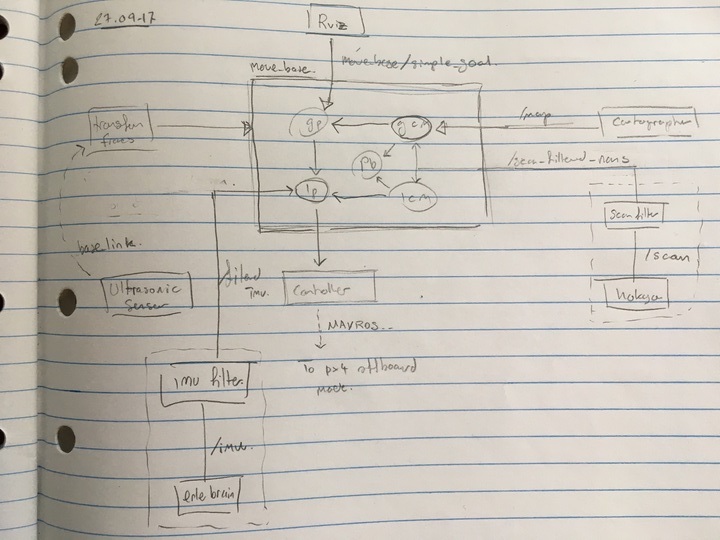 27.09.17
Rviz
move_base/simple_goal
move_base
transform
frames
gp
gcm
/map
Cartographer
pb
/scan_filtered_nans
lp
lcm
scan filter
base_link
/scan
Ultrasonic
Sensor
filtered
imu
Controller
hokuyo
MAVROS
To px4 offboard
mode.
imu filter
/imu
erle brain